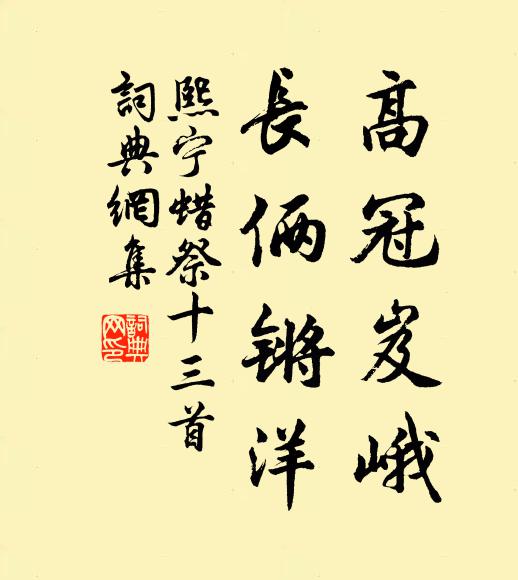 高冠岌峨
長俩锵洋
熙宁蜡祭十三首
詞典網集
詞典网印